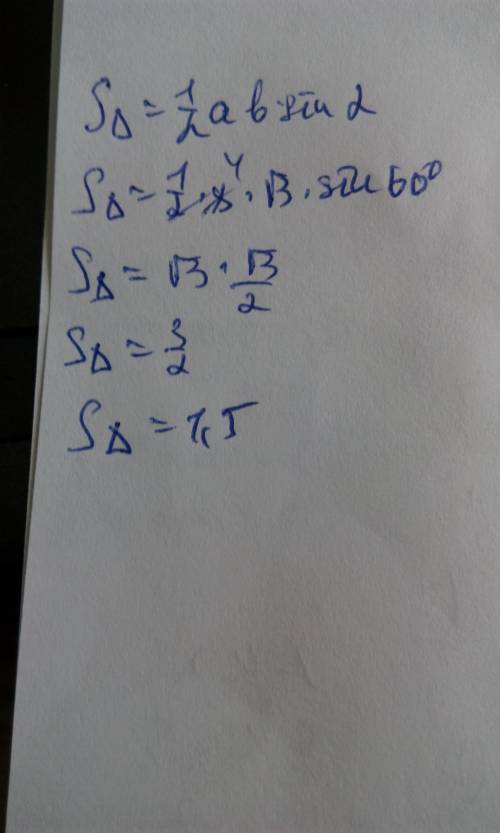 S△ = 1/2 a b · sin α
S△ = 1/2 · 8̶ 4 · √3 · sin 60°
S△ = √3 · √3/2
S△ = 3/2
S△ = 1,5